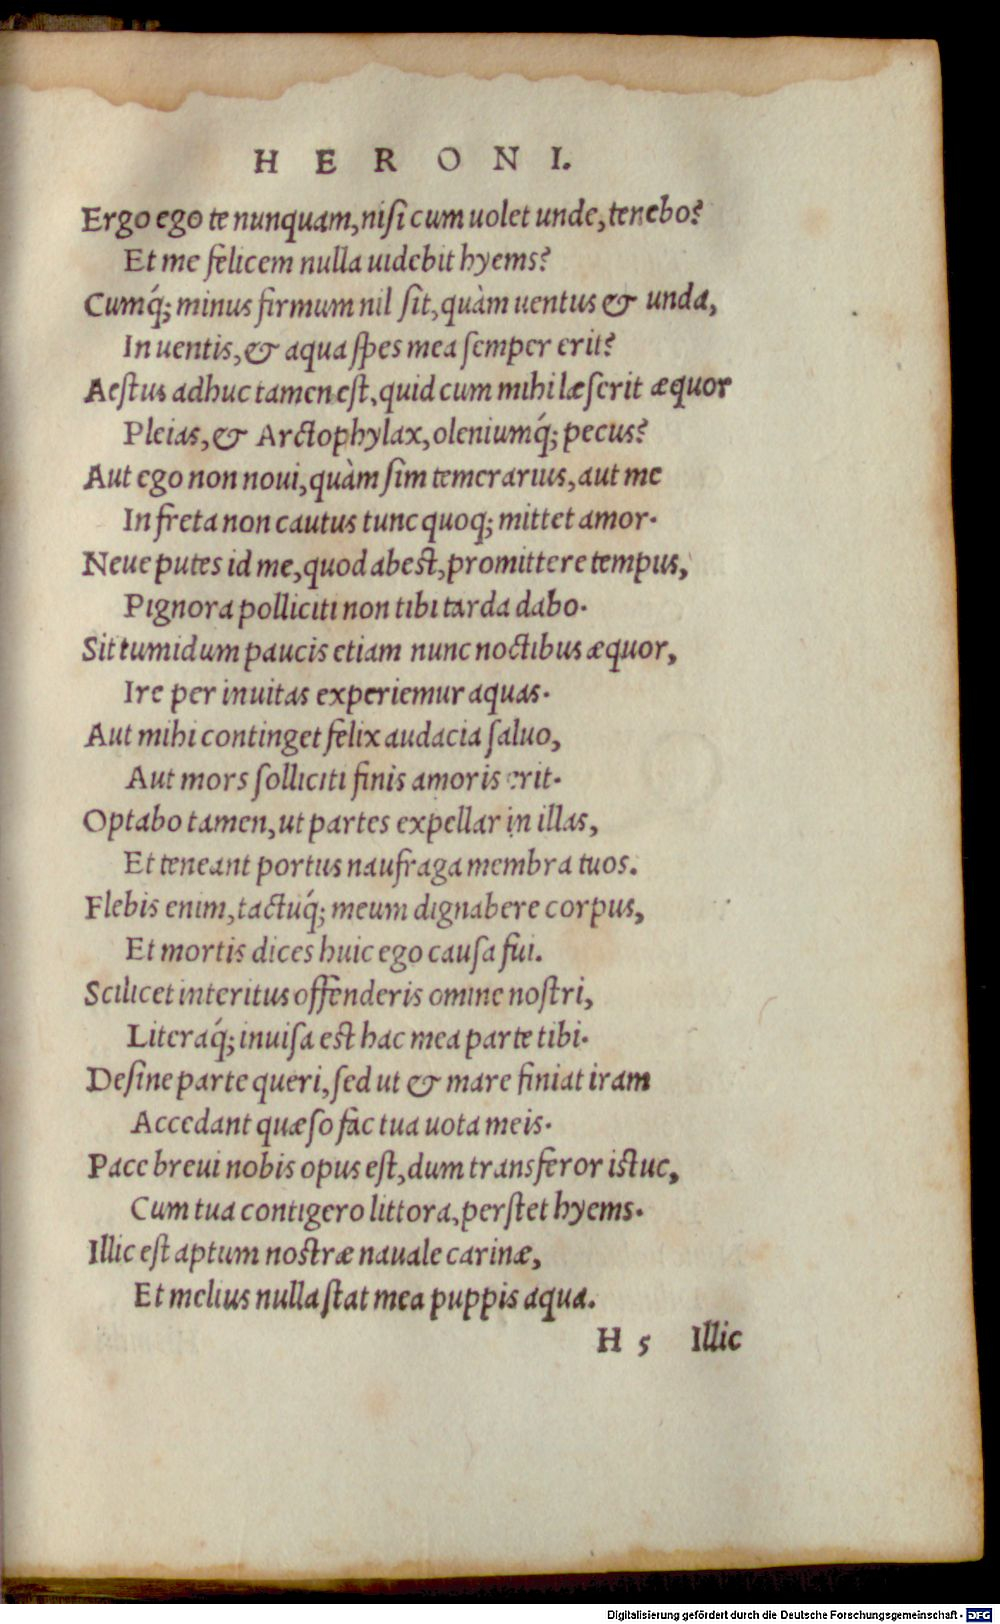 HERONI.
Ergo ego te nunquam, nisi cum uolet unde, tenebo?
Et me felicem nulla uidebit hyems?
Cumq́; minus firmum nil sit, quàm uentus & unda,
In uentis, & aqua spes mea semper erit?
Aestus adhuc tamen est, quid cum mihi læserit æquor
Pleias, & Arctophylax, oleniumq́; pecus?
Aut ego non noui, quàm sim temerarius, aut me
In freta non cautus tunc quoq; mittet amor.
Neue putes id me, quod abest, promittere tempus,
Pignora polliciti non tibi tarda dabo.
Sit tumidum paucis etiam nunc noctibus æquor,
Ire per inuitas experiemur aquas.
Aut mihi continget felix audacia saluo,
Aut mors solliciti finis amoris erit.
Optabo tamen, ut partes expellar in illas,
Et teneant portus naufraga membra tuos.
Flebis enim, tactuq́; meum dignabere corpus,
Et mortis dices huic ego causa fui.
Scilicet interitus offenderis omine nostri,
Literaq́; inuisa est hac mea parte tibi.
Desine parte queri, sed ut & mare finiat iram
Accedant quæso fac tua uota meis.
Pace breui nobis opus est, dum transferor istuc,
Cum tua contigero littora, perstet hyems.
Illic est aptum nostræ nauale carinæ,
Et melius nulla stat mea puppis aqua.
H 5 Illic
Digitalisierung gefördert durch die Deutsche Forschungsgemeinschaft - DFG